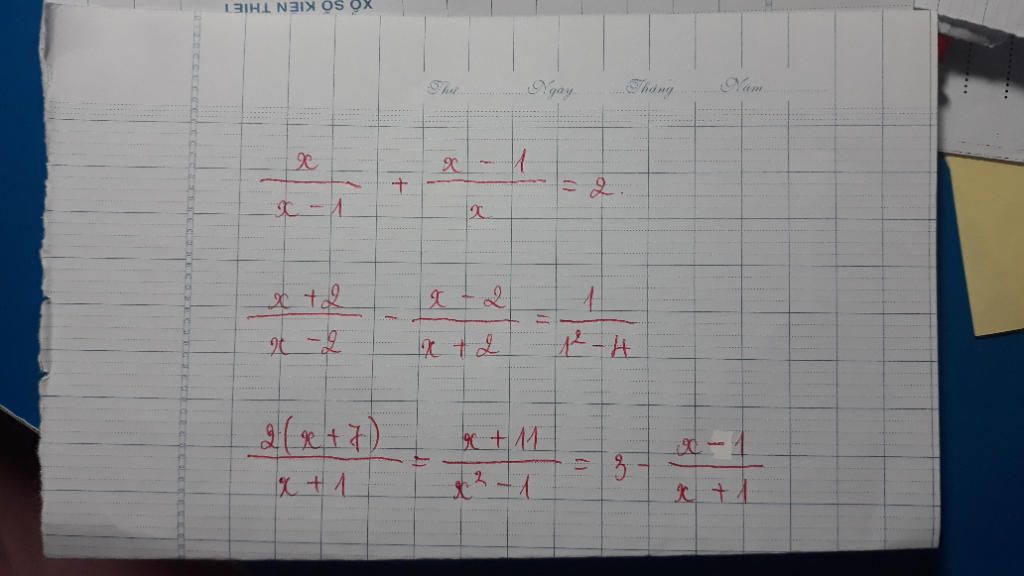 XỔ SỐ KIẾN THIẾT
Thứ Ngày Tháng Năm
x/(x - 1) + (x - 1)/x = 2.
(x + 2)/(x - 2) - (x - 2)/(x + 2) = 1/(1² - 4)
2(x + 7)/(x + 1) = (x + 11)/(x² - 1) = 3 - (x - 1)/(x + 1)